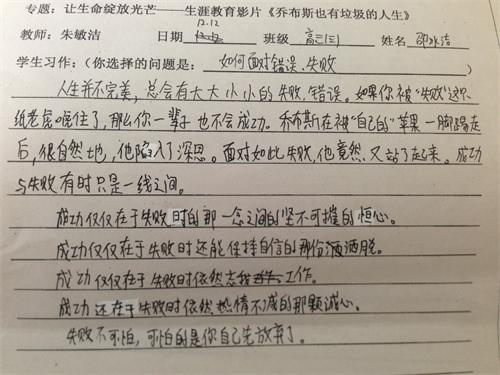 专题：让生命绽放光芒——生涯教育影片《乔布斯也有垃圾的人生》
12.12
教师：朱敏洁 日期 班级 高三(三) 姓名 邵冰洁
学生习作：（你选择的问题是： 如何面对错误、失败 ）
人生并不完美，总会有大大小小的失败、错误。如果你被“失败”这只
纸老虎唬住了，那么你一辈子也不会成功。乔布斯在被“自己的”苹果一脚踢走
后，很自然地，他陷入了深思。面对如此失败，他竟然又站了起来。成功
与失败有时只是一线之间。
成功仅仅在于失败时的那一念之间的坚不可摧的恒心。
成功仅仅在于失败时还能保持自信的那份洒洒脱。
成功仅仅在于失败时依然忘我工作。
成功还在于失败时依然热情不减的那颗诚心。
失败不可怕，可怕的是你自己先放弃了。